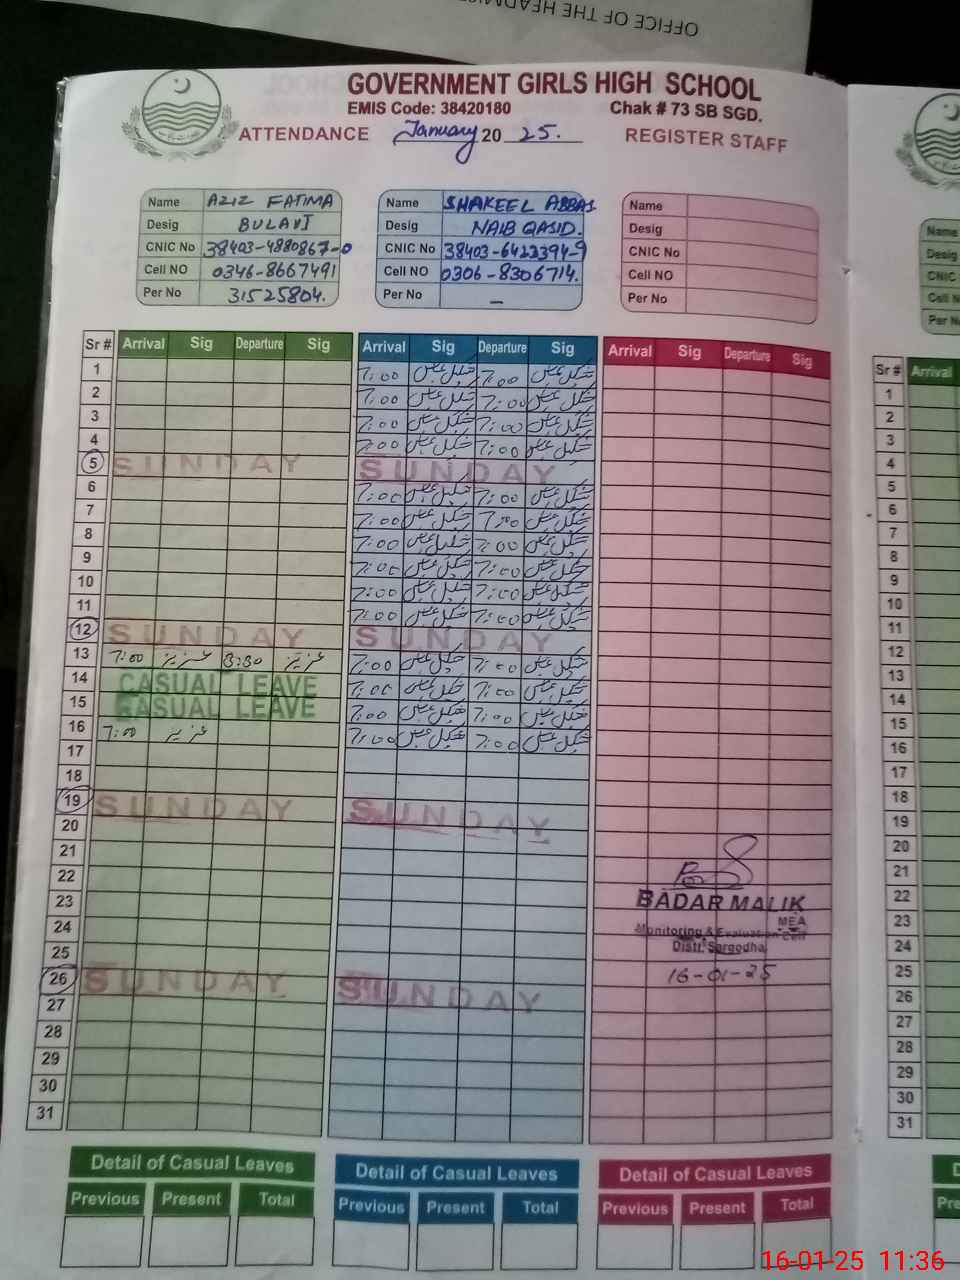 OFFICE OF THE
GOVERNMENT GIRLS HIGH SCHOOL
EMIS Code: 38420180 Chak # 73 SB SGD.
ATTENDANCE January 2025. REGISTER STAFF
Name AZIZ FATIMA
Desig BULAVI
CNIC No 38403-4880867-0
Cell NO 0346-8667491
Per No 31525804.
Name SHAKEEL ABBAS
Desig NAIB QASID.
CNIC No 38403-6423394-9
Cell NO 0306-8306714.
Per No –
Name
Desig
CNIC No
Cell NO
Per No
Name
Desig
CNIC
Cell N
Per N
Sr # Arrival Sig Departure Sig Arrival Sig Departure Sig Arrival Sig Departure Sig
1 7:00 شکیل عباس 7:00 شکیل عباس
2 7:00 شکیل عباس 7:00 شکیل عباس
3 7:00 شکیل عباس 7:00 شکیل عباس
4 7:00 شکیل عباس 7:00 شکیل عباس
5 SUNDAY SUNDAY
6 7:00 شکیل عباس 7:00 شکیل عباس
7 7:00 شکیل عباس 7:00 شکیل عباس
8 7:00 شکیل عباس 7:00 شکیل عباس
9 7:00 شکیل عباس 7:00 شکیل عباس
10 7:00 شکیل عباس 7:00 شکیل عباس
11 7:00 شکیل عباس 7:00 شکیل عباس
12 SUNDAY SUNDAY
13 7:00 عزیز 8:30 عزیز 7:00 شکیل عباس 7:00 شکیل عباس
14 CASUAL LEAVE 7:00 شکیل عباس 7:00 شکیل عباس
15 CASUAL LEAVE 7:00 شکیل عباس 7:00 شکیل عباس
16 7:00 عزیز 7:00 شکیل عباس 7:00 شکیل عباس
17
18
19 SUNDAY SUNDAY
20
21
22
23
24
25
26 SUNDAY SUNDAY
27
28
29
30
31
BADAR MALIK
MEA
Monitoring & Evaluation Cell
Distt. Sargodha
16-01-25
Detail of Casual Leaves Detail of Casual Leaves Detail of Casual Leaves
Previous Present Total Previous Present Total Previous Present Total
Sr # Arrival
1
2
3
4
5
6
7
8
9
10
11
12
13
14
15
16
17
18
19
20
21
22
23
24
25
26
27
28
29
30
31
16-01-25 11:36